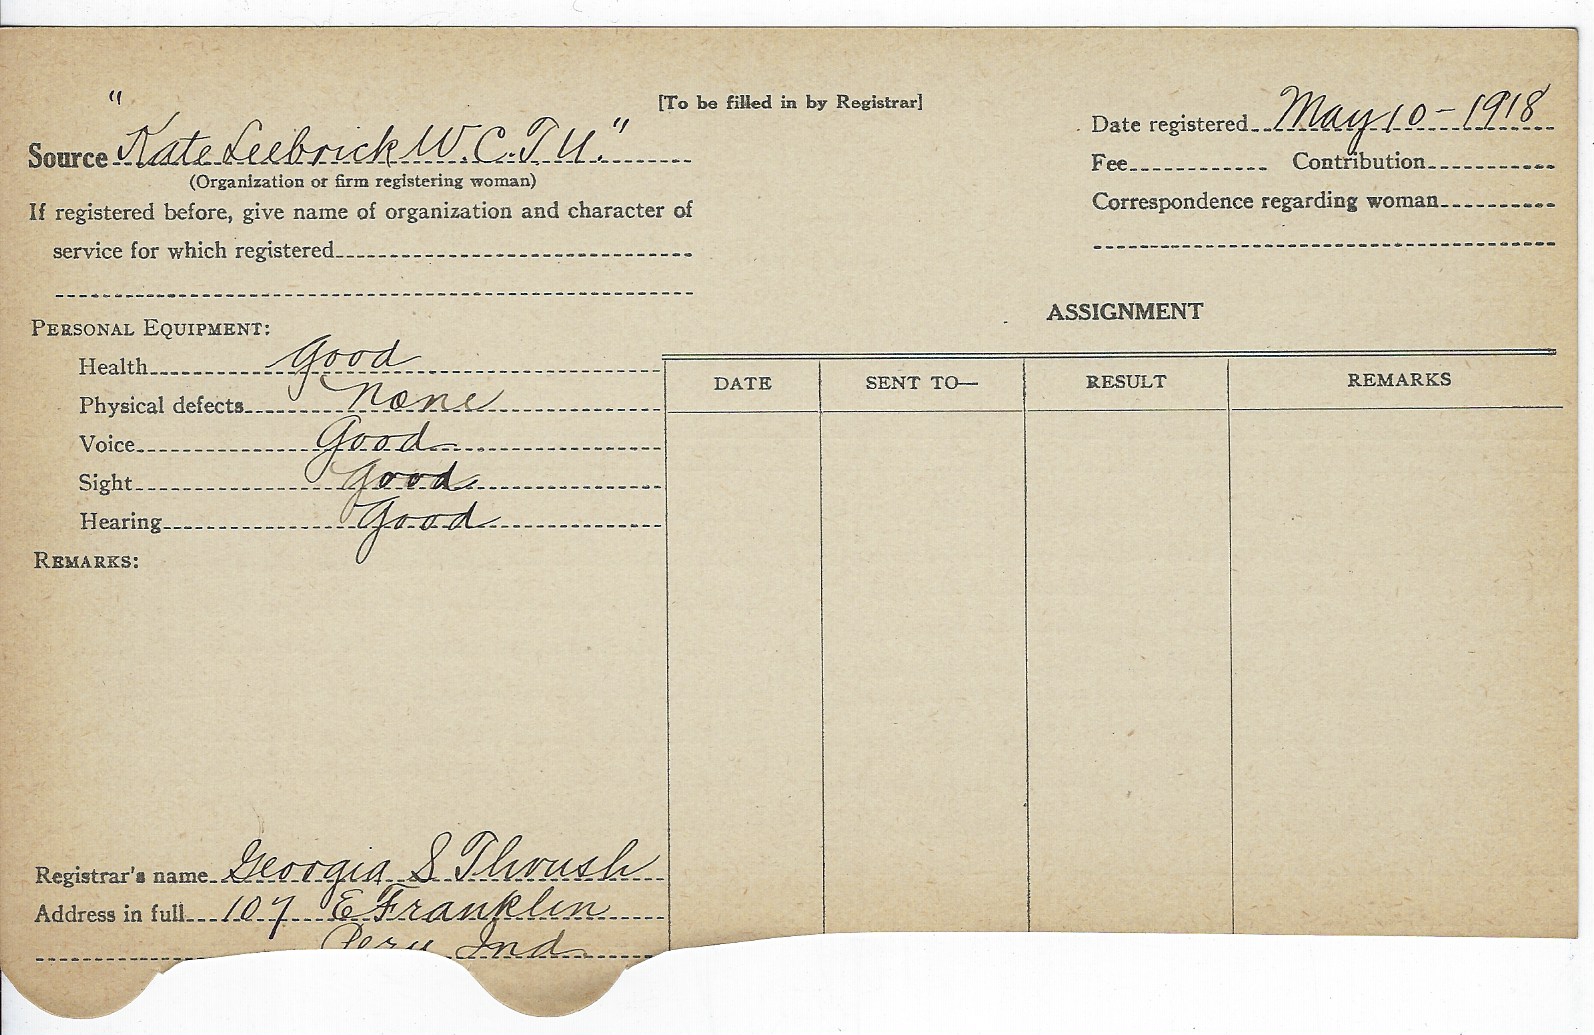 [To be filled in by Registrar]
Source "Kate Seebrick W.C.T.U."
(Organization or firm registering woman)
If registered before, give name of organization and character of
service for which registered
Date registered May 10-1918
Fee Contribution
Correspondence regarding woman
PERSONAL EQUIPMENT:
Health Good
Physical defects None
Voice Good
Sight Good
Hearing Good
REMARKS:
ASSIGNMENT
DATE SENT TO— RESULT REMARKS
Registrar's name Georgia S Throush
Address in full 107 E Franklin
Peru Ind